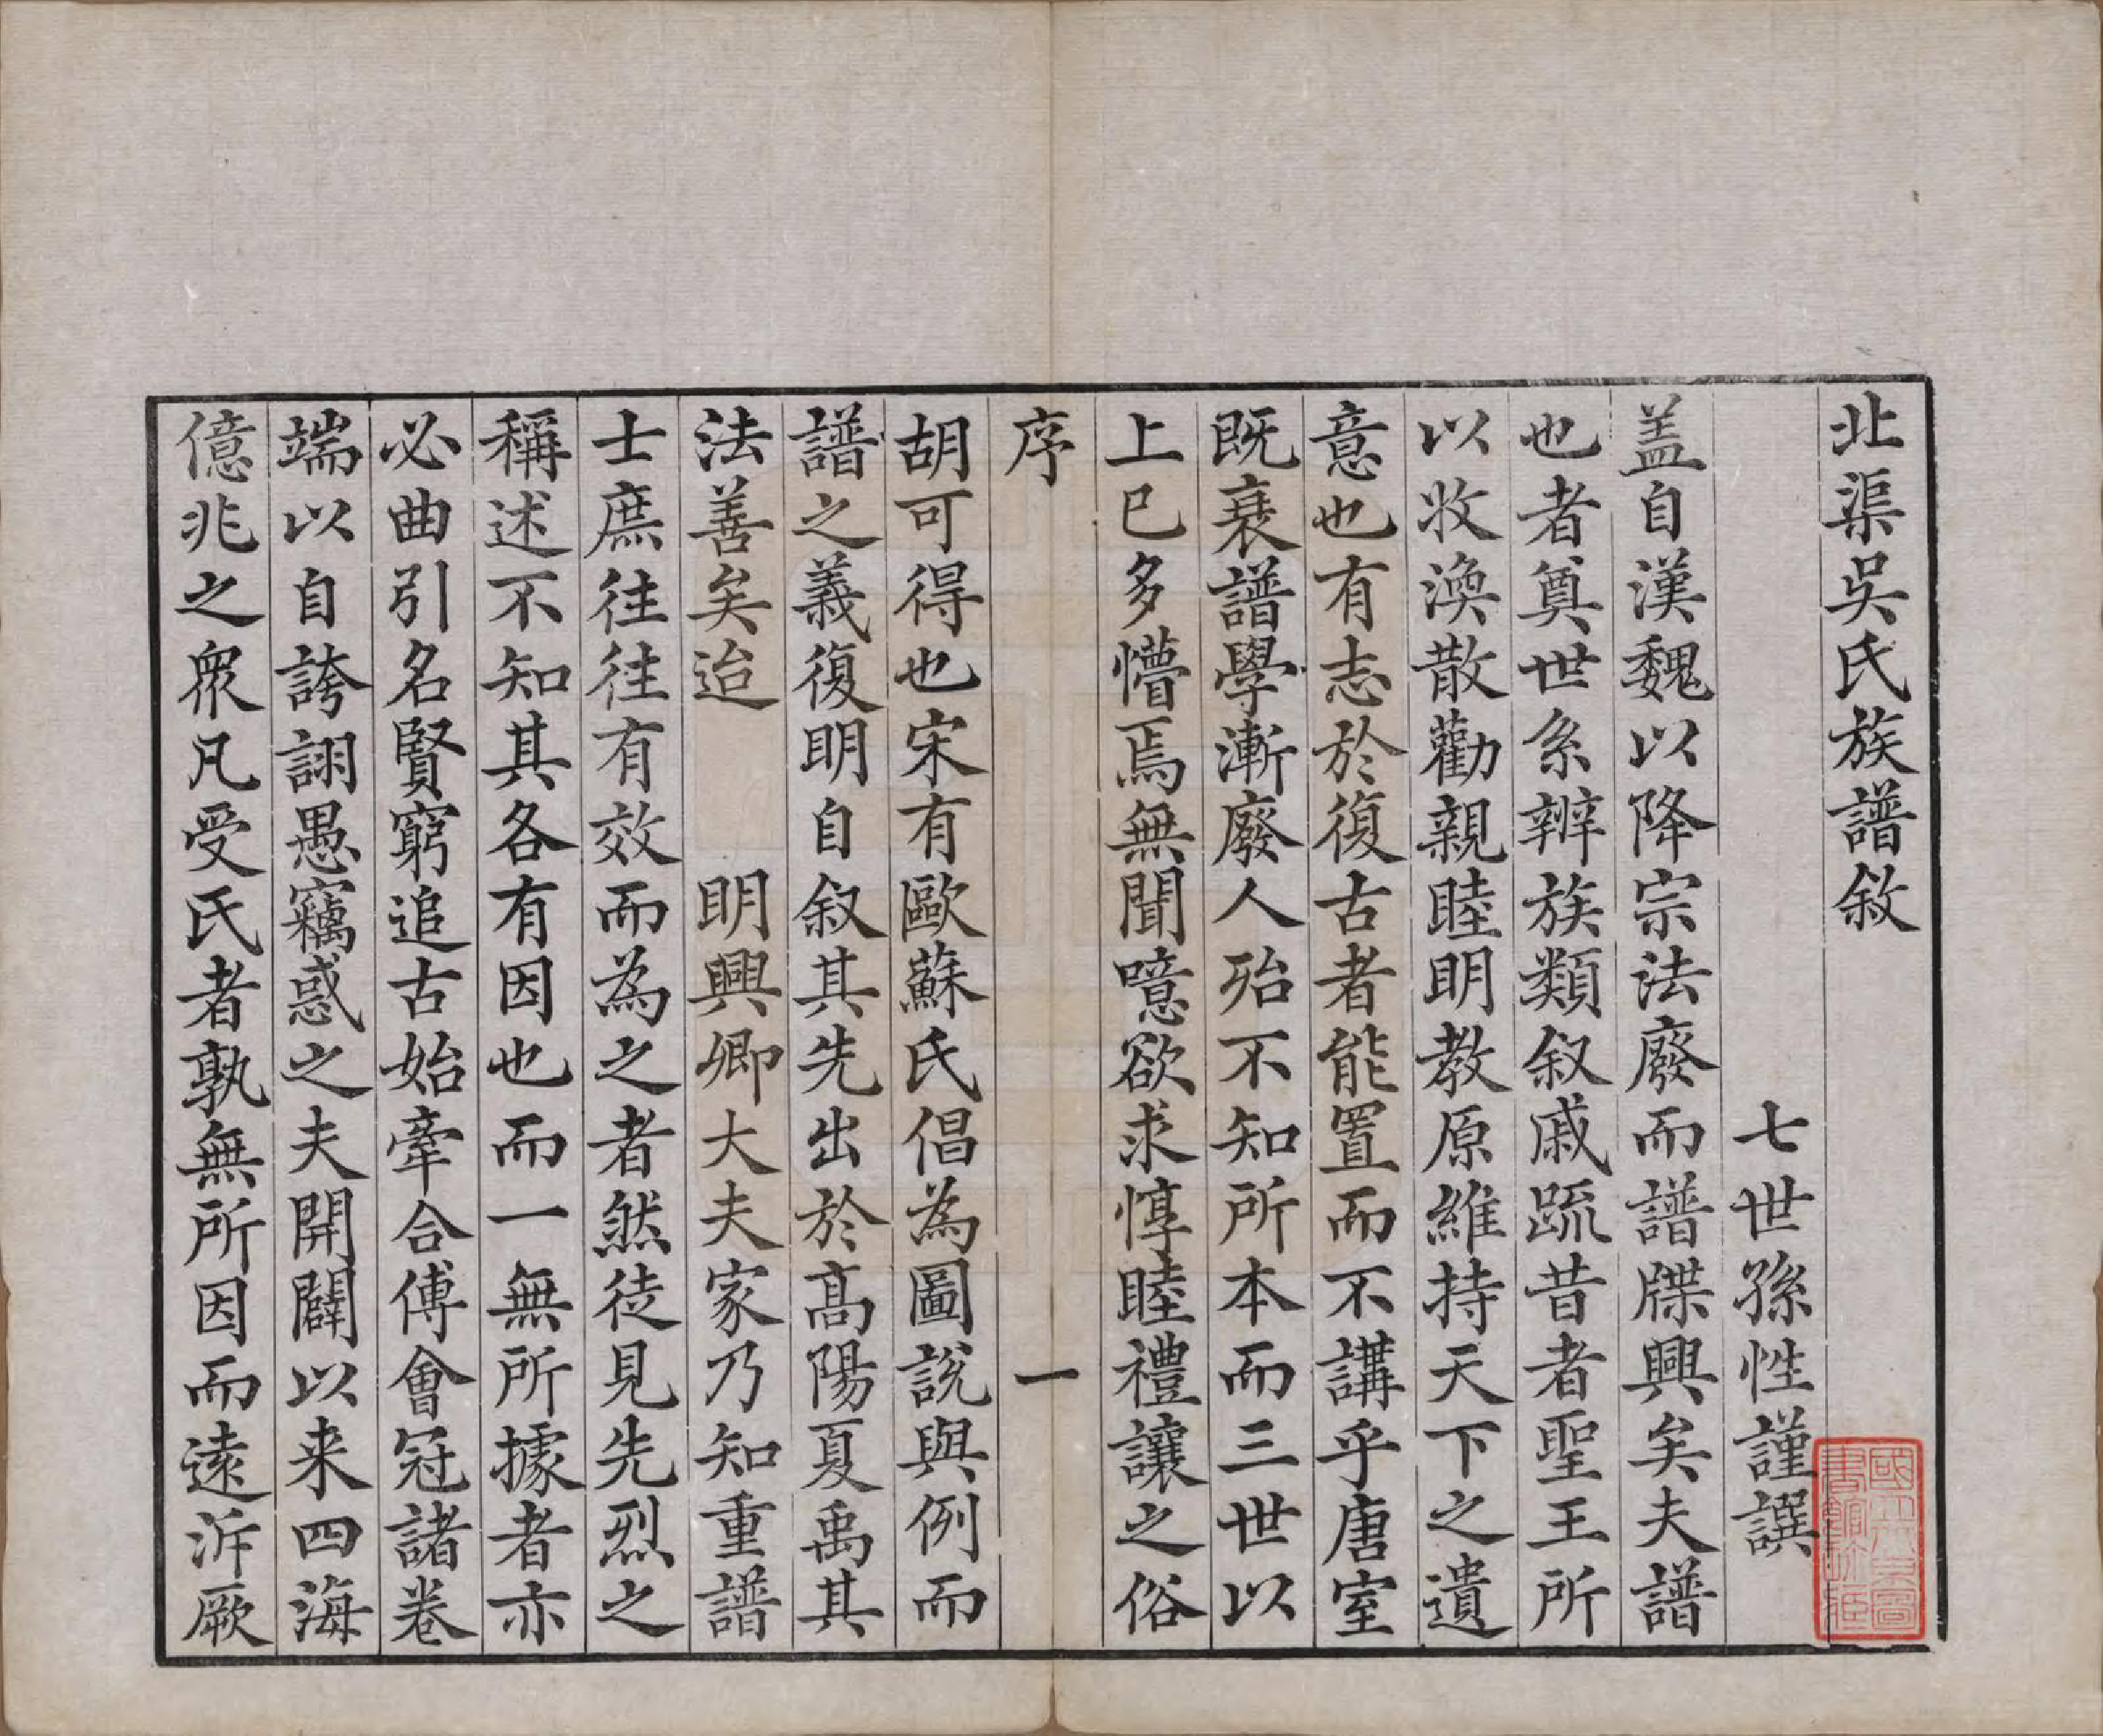 北渠吳氏族譜敘
七世孫性謹譔
盖自漢魏以降宗法廢而譜牒興矣夫譜
也者奠世系辨族類叙戚疏昔者聖王所
以收渙散勸親睦明教原維持天下之遺
意也有志於復古者能置而不講乎唐室
既衰譜學漸廢人殆不知所本而三世以
上已多懵焉無聞噫欲求惇睦禮讓之俗
序 一
胡可得也宋有歐蘇氏倡為圖說與例而
譜之義復明自叙其先出於高陽夏禹其
法善矣迨 明興卿大夫家乃知重譜
士庶往往有效而為之者然徒見先烈之
稱述不知其各有因也而一無所據者亦
必曲引名賢窮追古始牽合傅會冠諸卷
端以自誇詡愚竊惑之夫開闢以来四海
億兆之衆凡受氏者孰無所因而遠泝厥
國立北平圖
書館收藏